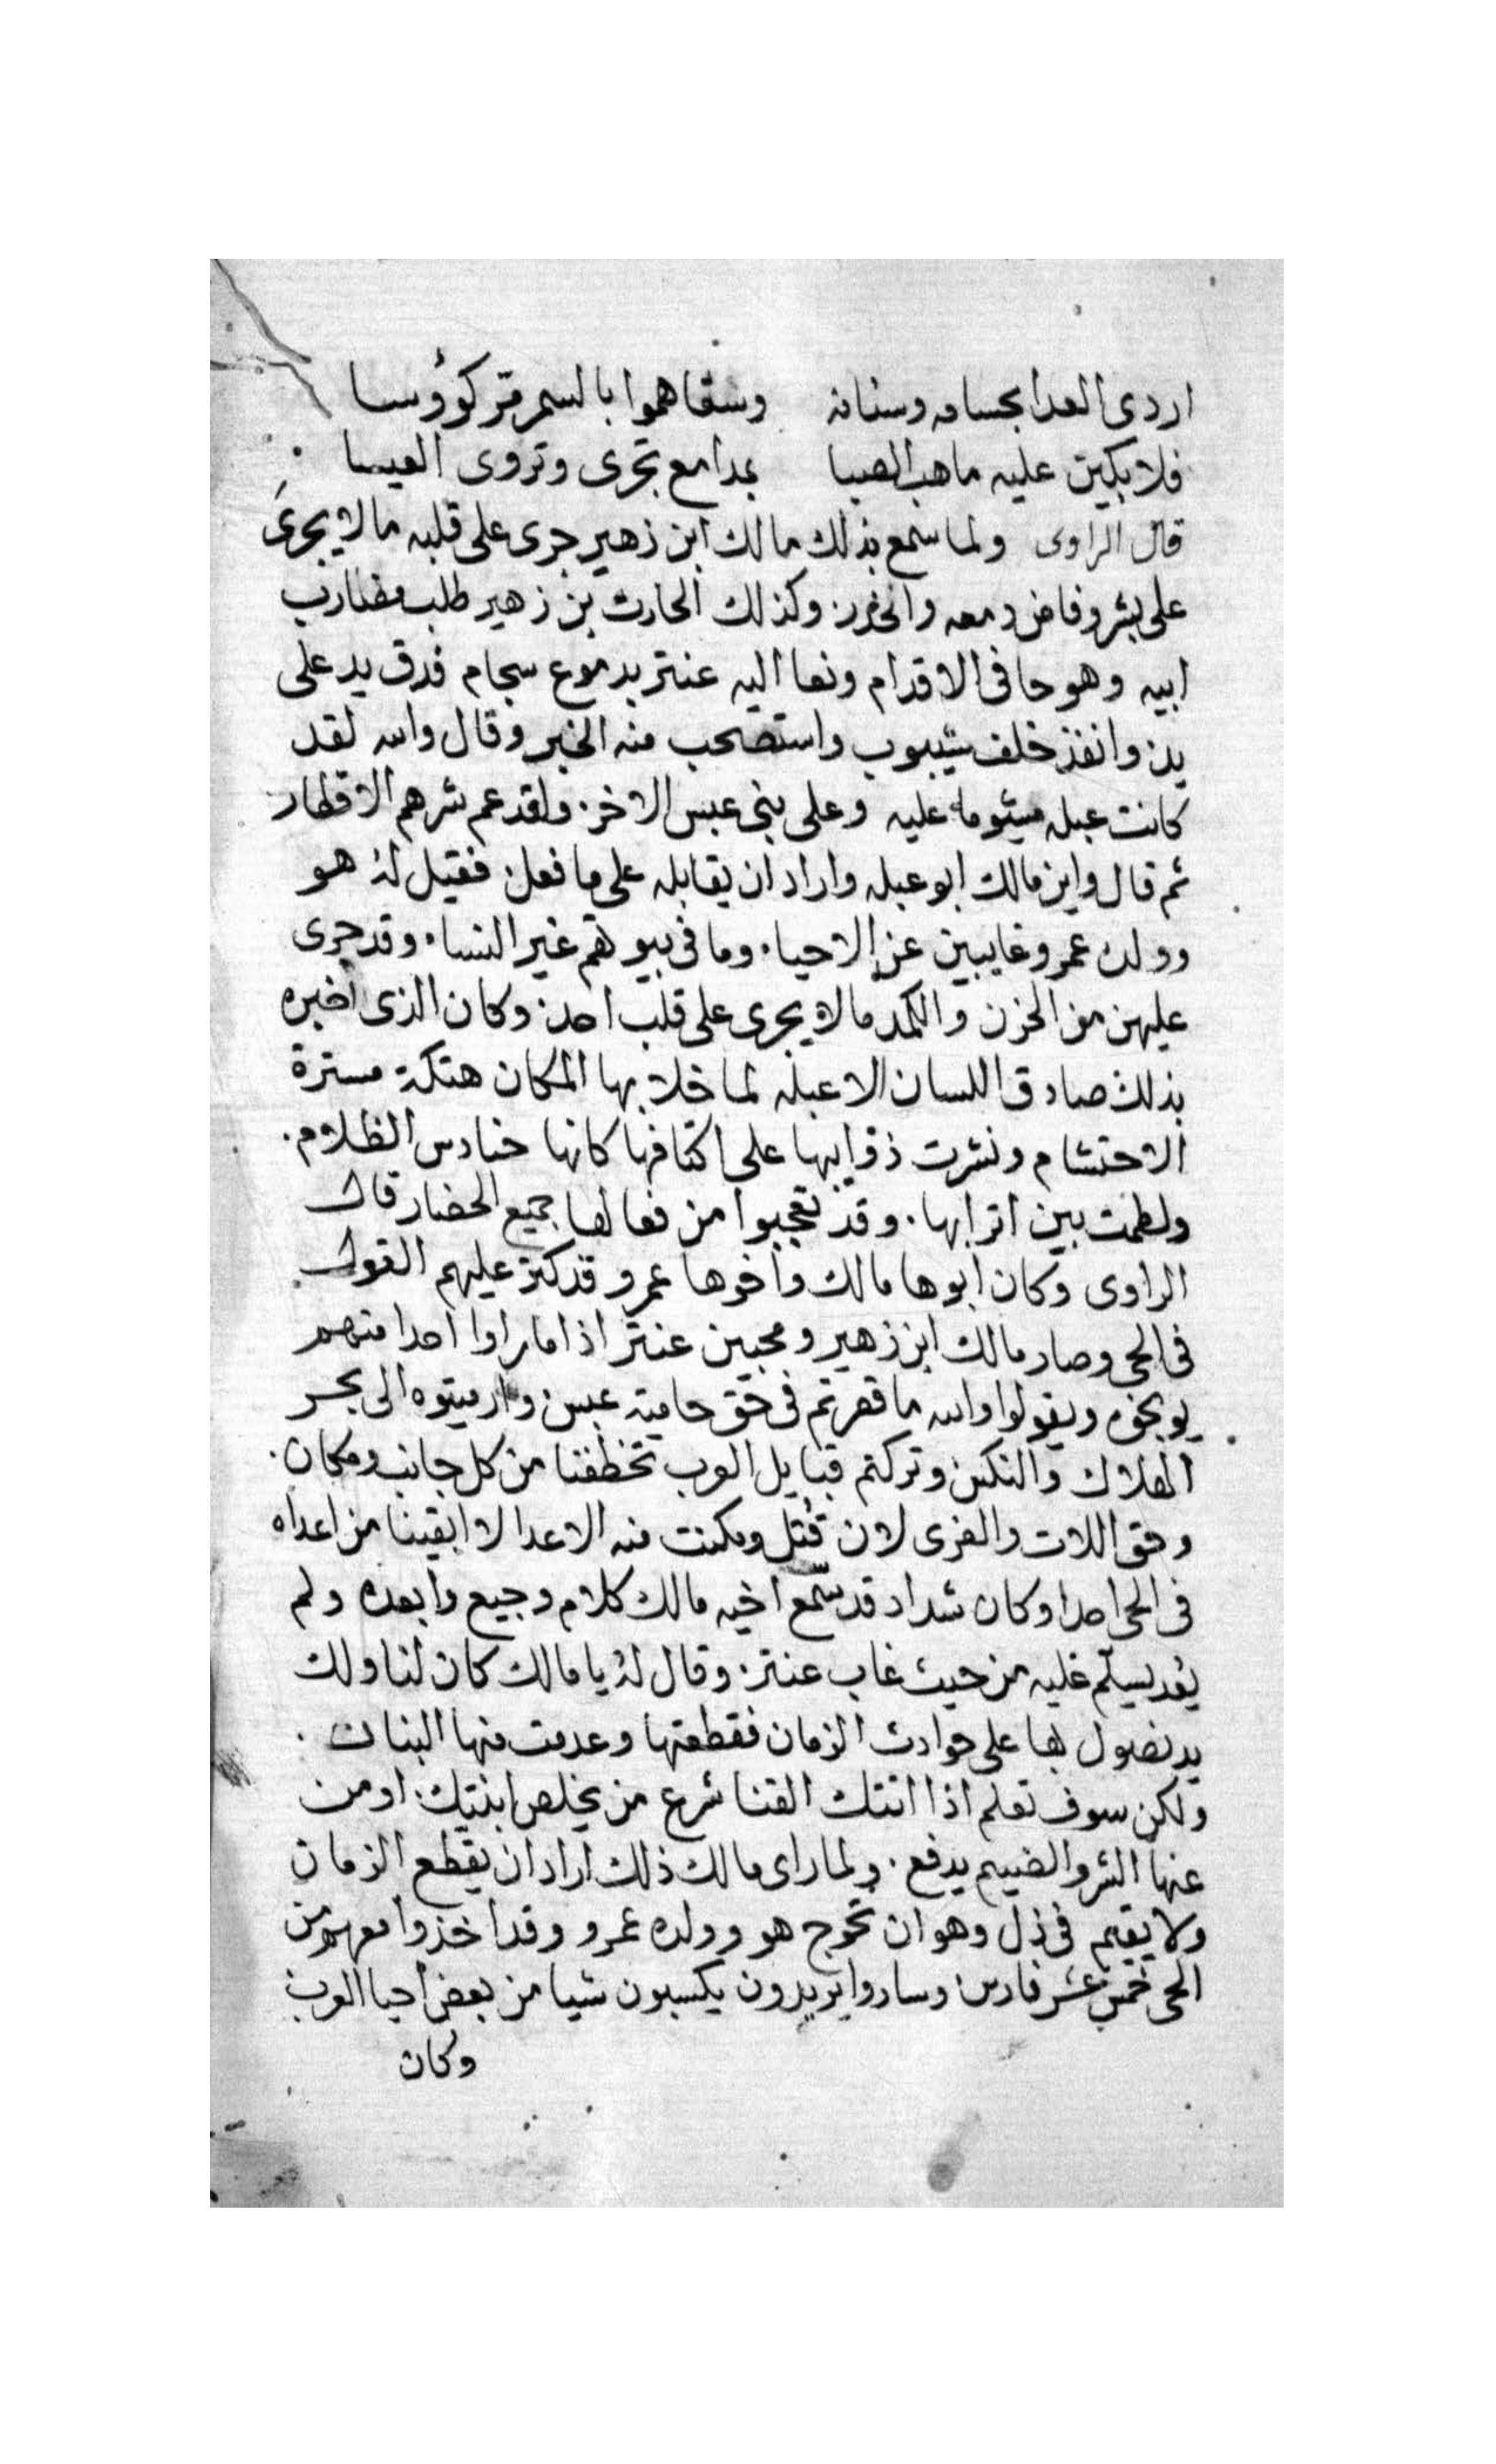 اردى العدا بحسامه وسنانه وسقاهموا بالسمر قتر كؤوسا
فلابكين عليه ما هب الصبا بمدامع تجرى وتروى العيسا
قال الراوى ولما سمع بذلك مالك ابن زهير جرى على قلبه مالا يجرى
على بشر وفاض دمعه وانحدر وكذلك الحارث بن زهير طلب مضارب
ابيه وهو حافى الاقدام ونعا اليه عنتر بدموع سجام فدق يد على
يد وانفذ خلف شيبوب واستصحب منه الخبر وقال والله لقد
كانت عبله ميشومه عليه وعلى بنى عبس الاخر ولقد عم شرهم الاقطار
ثم قال واين مالك ابو عبله واراد ان يقابله على ما فعل فقيل له هو
وولده عمرو غايبين عن الاحيا وما فى بيوتهم غير النسا وقد جرى
عليهن من الحزن والكمد مالا يجرى على قلب احد وكان الذى اخبره
بذلك صادق اللسان الا عبله لما خلا بها المكان هتكة مسترة
الاحتشام ونشرت ذوايبها على اكتافها كانها حنادس الظلام
ولطمت بين اترابها وقد تعجبوا من فعالها جميع الحضار قال
الراوى وكان ابوها مالك واخوها عمرو قد كثر عليهم القول
فى الحى وصار مالك ابن زهير ومحبين عنتر اذا ما راوا احدا منهم
يوبخوه ويقولوا والله ما قصرتم فى حق حامية عبس وارميتوه الى بحر
الهلاك والنكس وتركتم قبايل العرب تخطفنا من كل جانب ومكان
وحق اللات والعزى لان قتل ومكنت منه الاعدا لا ابقينا من اعداه
فى الحى احدا وكان شداد قد سمع اخيه مالك كلام وجيع وابعده ولم
يعد يسلم عليه من حيث غاب عنتر وقال له يا مالك كان لنا ولك
يد نصول بها على حوادث الزمان فقطعتها وعدمت منها البنان
ولكن سوف تعلم اذا اتتك القنا شرع من يخلص ابنتك او من
عنها الشر والضيم يدفع ولما راى مالك ذلك اراد ان يقطع الزمان
ولا يقيم فى ذل وهو ان تخرج هو وولده عمرو وقد اخذوا معهم من
الحى خمس عشر فارس وساروا يريدون يكسبون شيا من بعض احيا العرب
وكان